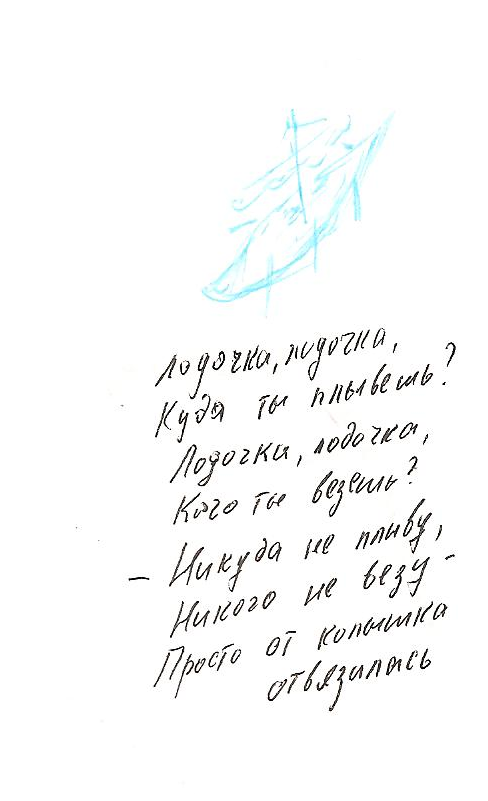 Лодочка, лодочка,
Куда ты плывешь?
Лодочка, лодочка,
Кого ты везешь?
— Никуда не плыву,
Никого не везу -
Просто от колышка
отвязалась